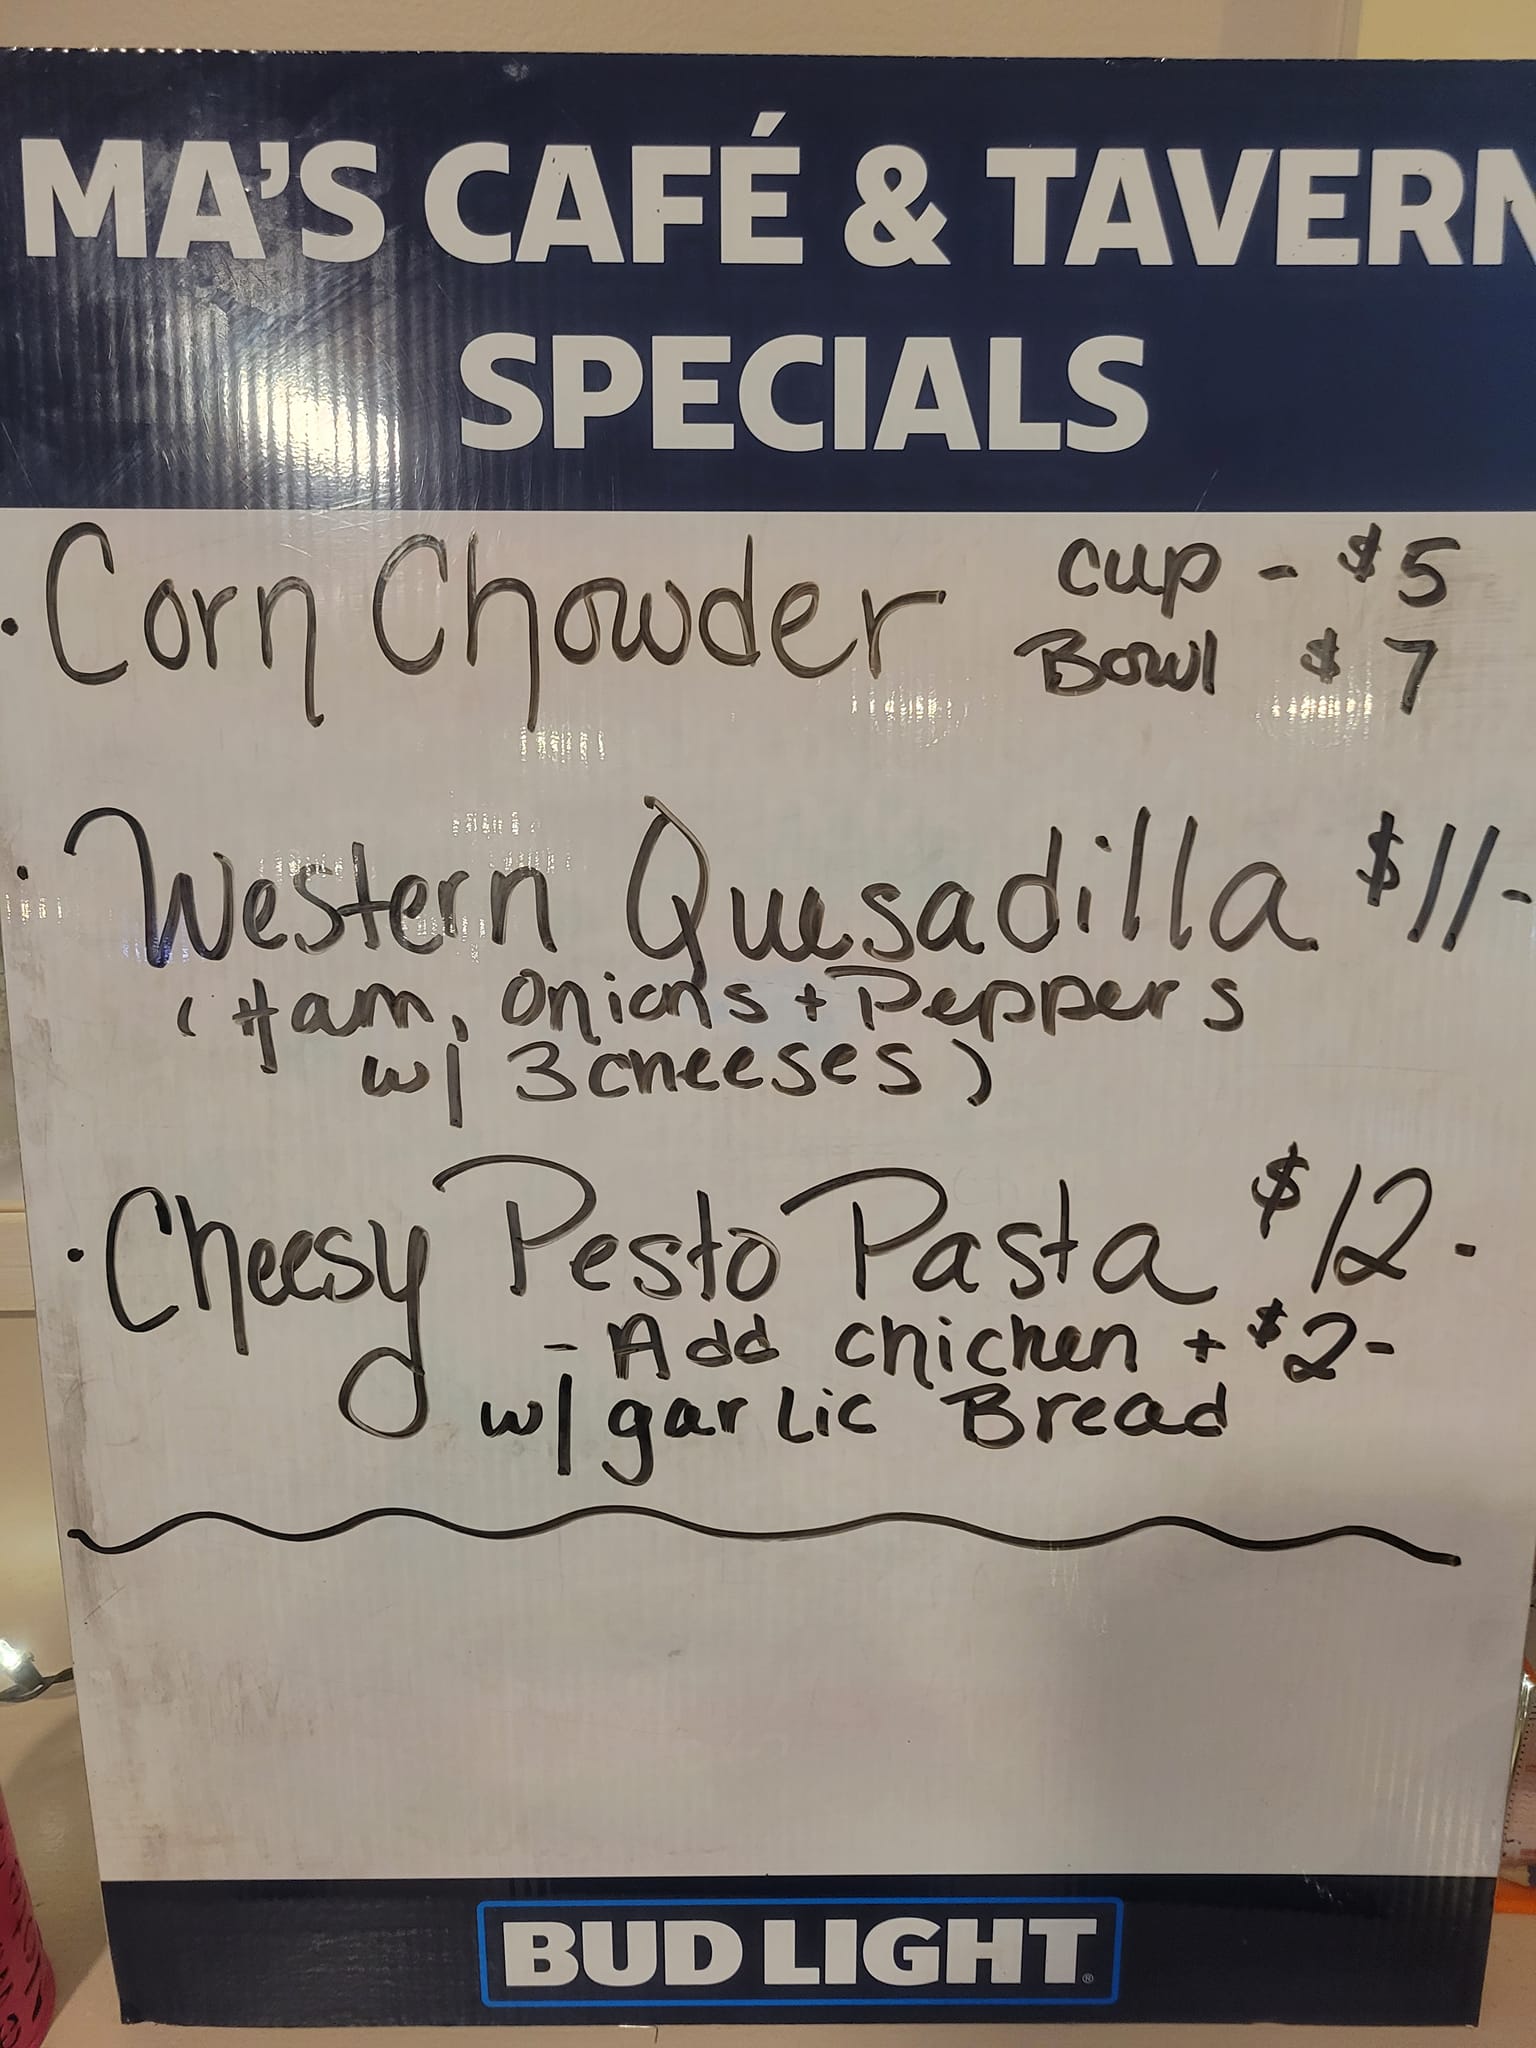 MA'S CAFÉ & TAVERN
SPECIALS
· Corn Chowder cup - $5
Bowl $7
· Western Quesadilla $11-
(Ham, Onions + Peppers
w/ 3 cheeses)
· Cheesy Pesto Pasta $12-
- Add chicken + $2-
w/ garlic Bread
BUD LIGHT®